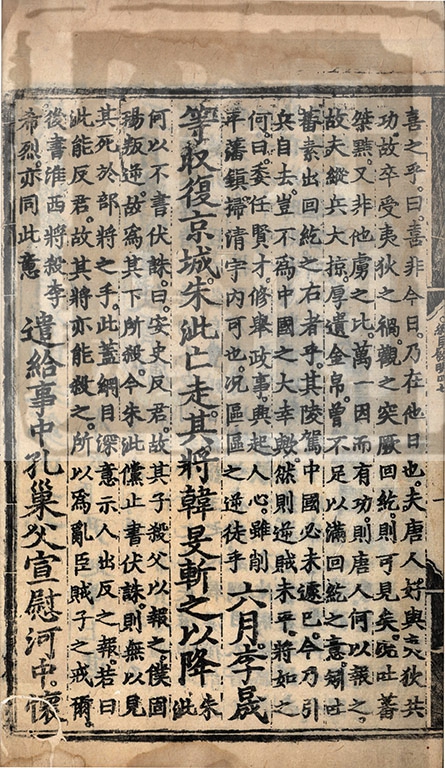 喜之乎。曰。喜非今日。乃在他日也。夫唐人好與夷狄共
功。故卒受夷狄之禍。觀之突厥回紇。則可見矣。况吐蕃
桀黠。又非他虜之比。萬一因而有功。則唐人何以報之。
故夫縱兵大掠。厚遺金帛。曾不足以滿回紇之意。矧吐
蕃素出回紇之右者乎。其陵駕中國必未遽已。今乃引
兵自去。豈不爲中國之大幸歟。然則逆賊未平。將如之
何。曰。委任賢才。修舉政事。興起人心。雖削
平藩鎮。掃清宇内可也。况區區之逆徒乎
六月。李晟
等取復京城。朱泚亡走。其將韓旻斬之以降
朱
泚
何以不書伏誅。曰。安史反君。故其子殺父以報之。僕固
瑒叛逆。故爲其下所殺。今朱泚儻止書伏誅。則無以見
其死於部將之手。此蓋綱目深意。示人出反之報。若曰
泚能反君。故其將亦能殺之。所以爲亂臣賊子之戒爾。
後書淮西將殺李
希烈。亦同此意
遣給事中孔巢父宣慰河中。懷